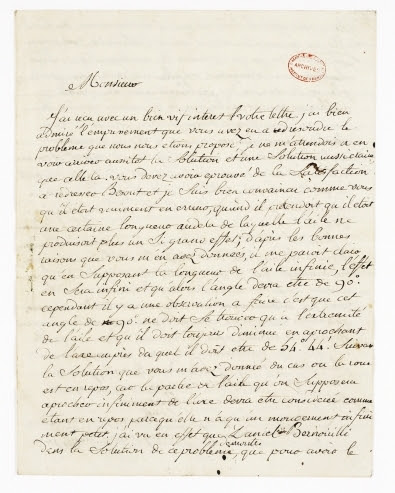 Monsieur
J'ai reçu avec un bien vif interet votre lettre, j'ai bien
admiré l'empressement que vous avez eu a resoudre le
problême que nous nous etions proposé, je ne m'attendois a en
avoir aussitot la Solution et une Solution aussi claire
que celle la. vous devez avoir eprouvé de la Satisfaction
a redresser et je Suis bien convaincu comme vous
qu'il etoit vraiment en erreur, quand il pretendoit qu'il etoit
une certaine longueur audela de laquelle l'aile ne
produisoit plus un Si grand effet; d'apres les bonnes
raisons que vous m'en avez données, il me paroit clair
qu'en Supposant la longueur de l'aile infinie, l'effet
en Sera infini et qu'alors l'angle devra être de 90°.
cependant il y a une observation a faire c'est que cet
angle de 90°. ne doit Se trouver qu'a l'extremité
de l'aile et qu'il doit toujours diminuer en aprochant
de l'axe auprès duquel il doit être de 54°. 44'. Suivant
la Solution que vous m'avez donnée du cas ou la roue
est en repos, car la partie de l'aile qu'on Suppose
aprocher infiniment de l'axe devra être considerée comme
etant en repos parcequ'elle n'a qu'un mouvement infini
ment petit. j'ai vu en effet que Daniel Bernouilli
dans la Solution de ce problême, que pour avoir le